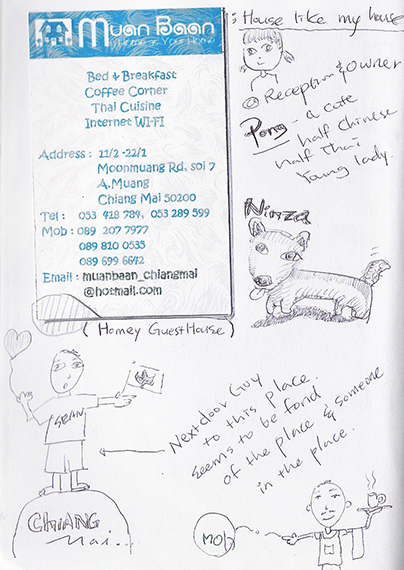 Muan Baan
My Home is Your Home
Bed & Breakfast
Coffee Corner
Thai Cuisine
Internet WI-FI
Address : 11/2 -22/1
Moonmuang Rd, soi 7
A.Muang
Chiang Mai 50200
Tel : 053 418 784, 053 289 599
Mob : 089 207 7977
089 810 0535
089 699 6642
Email : muanbaan_chiangmai
@hotmail.com
(Homey GuestHouse)
: House like my house
Reception & Owner
Pong - a cute
half Chinese
half Thai
Young lady.
Ninza
SEAN
CHiANG
Mai...
Nextdoor Guy
to this place.
Seems to be fond
of the place & someone
in the place.